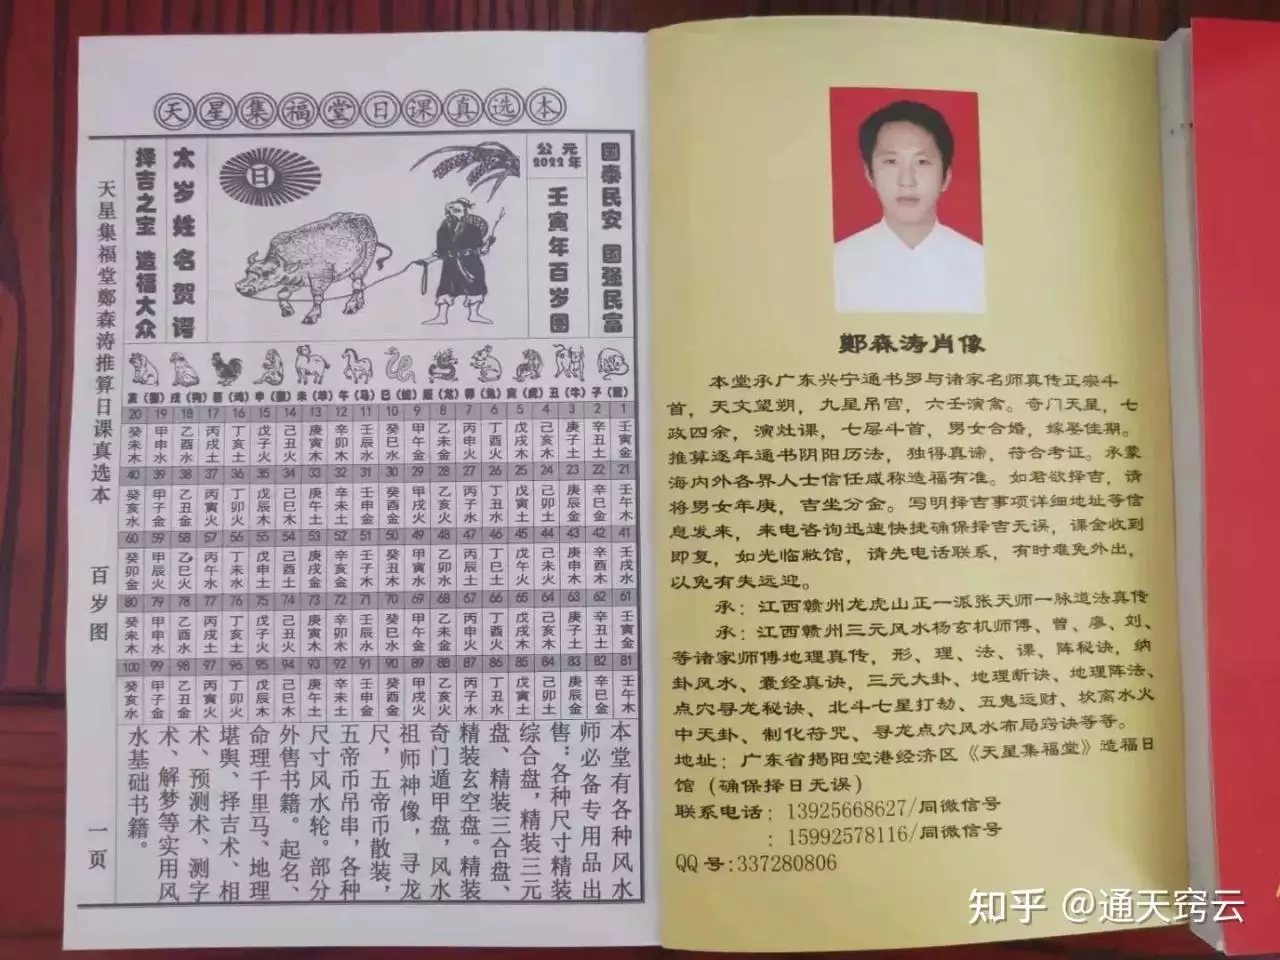 天星集福堂日课真选本
国泰民安 国强民富
公元
2022年
壬寅年百岁图
日
太岁姓名贺谔
择吉之宝 造福大众
天星集福堂鄭森涛推算日课真选本 百岁图 一页
亥(豬) 戌(狗) 酉(鸡) 申(猴) 未(羊) 午(马) 巳(蛇) 辰(龙) 卯(兔) 寅(虎) 丑(牛) 子(鼠)
20 19 18 17 16 15 14 13 12 11 10 9 8 7 6 5 4 3 2 1
癸未木 甲申水 乙酉水 丙戌土 丁亥土 戊子火 己丑火 庚寅木 辛卯木 壬辰水 癸巳水 甲午金 乙未金 丙申火 丁酉火 戊戌木 己亥木 庚子土 辛丑土 壬寅金
40 39 38 37 36 35 34 33 32 31 30 29 28 27 26 25 24 23 22 21
癸亥水 甲子金 乙丑金 丙寅火 丁卯火 戊辰木 己巳木 庚午土 辛未土 壬申金 癸酉金 甲戌火 乙亥火 丙子水 丁丑水 戊寅土 己卯土 庚辰金 辛巳金 壬午木
60 59 58 57 56 55 54 53 52 51 50 49 48 47 46 45 44 43 42 41
癸卯金 甲辰火 乙巳火 丙午水 丁未水 戊申土 己酉土 庚戌金 辛亥金 壬子木 癸丑木 甲寅水 乙卯水 丙辰土 丁巳土 戊午火 己未火 庚申木 辛酉木 壬戌水
80 79 78 77 76 75 74 73 72 71 70 69 68 67 66 65 64 63 62 61
癸未木 甲申水 乙酉水 丙戌土 丁亥土 戊子火 己丑火 庚寅木 辛卯木 壬辰水 癸巳水 甲午金 乙未金 丙申火 丁酉火 戊戌木 己亥木 庚子土 辛丑土 壬寅金
100 99 98 97 96 95 94 93 92 91 90 89 88 87 86 85 84 83 82 81
癸亥水 甲子金 乙丑金 丙寅火 丁卯火 戊辰木 己巳木 庚午土 辛未土 壬申金 癸酉金 甲戌火 乙亥火 丙子水 丁丑水 戊寅土 己卯土 庚辰金 辛巳金 壬午木
本堂有各种风水
师必备专用品出
售；各种尺寸精装
综合盘，精装三元
盘、精装三合盘、
精装玄空盘。精装
奇门遁甲盘，风水
祖师神像，寻龙
尺，五帝币散装，
五帝币吊串，各种
尺寸风水轮。部分
外售书籍。起名、
命理千里马、地理
堪舆、择吉术、相
术、预测术、测字
术、解梦等实用风
水基础书籍。
鄭森涛肖像
本堂承广东兴宁通书罗与诸家名师真传正宗斗
首，天文望朔，九星吊宫，六壬演禽。奇门天星，七
政四余，演灶课，七层斗首，男女合婚，嫁娶佳期。
推算逐年通书阴阳历法，独得真谛，符合考证。承蒙
海内外各界人士信任咸称造福有准。如君欲择吉，请
将男女年庚，吉坐分金。写明择吉事项详细地址等信
息发来，来电咨询迅速快捷确保择吉无误，课金收到
即复，如光临敝馆，请先电话联系，有时难免外出，
以免有失远迎。
承：江西赣州龙虎山正一派张天师一脉道法真传
承：江西赣州三元风水杨玄机师傅、曾、廖、刘、
等诸家师傅地理真传，形、理、法、课、阵秘诀，纳
卦风水、囊经真诀，三元大卦、地理断诀、地理阵法、
点穴寻龙秘诀、北斗七星打劫、五鬼运财、坎离水火
中天卦、制化符咒、寻龙点穴风水布局窍诀等等。
地址：广东省揭阳空港经济区《天星集福堂》造福日
馆（确保择日无误）
联系电话：13925668627/同微信号
：15992578116/同微信号
QQ号:337280806
知乎 @通天窍云